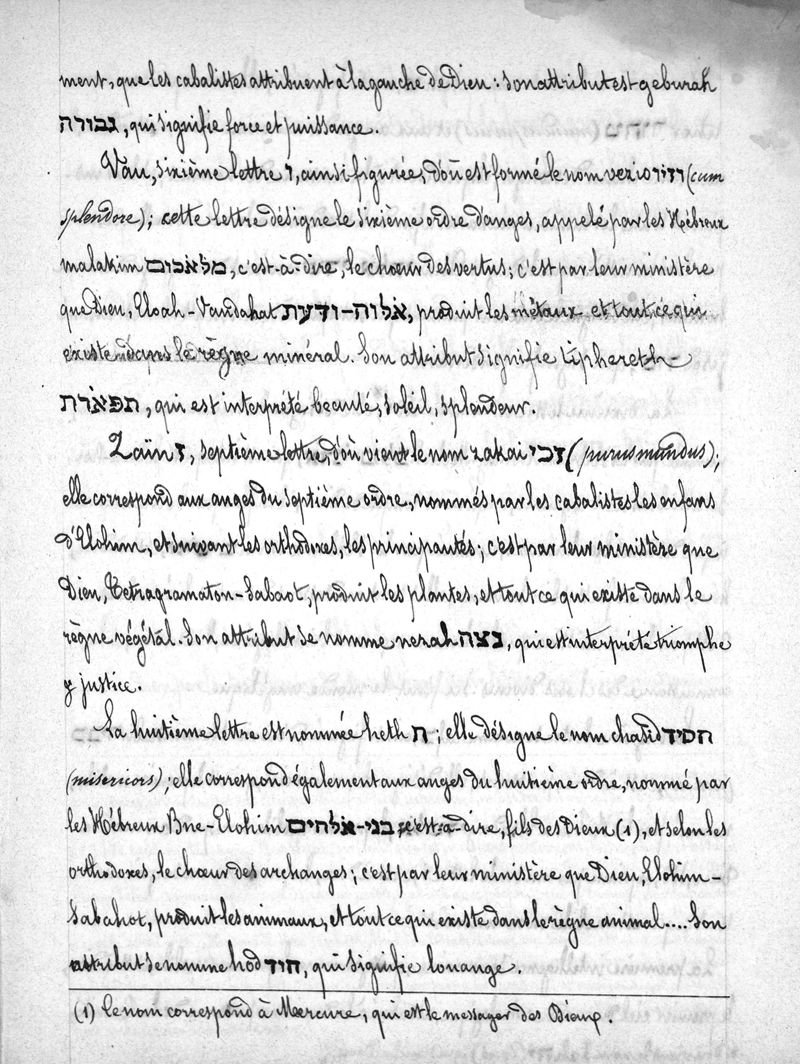 ment, que les cabalistes attribuent à la gauche de Dieu : son attribut est geburah
גבורה, qui signifie force et puissance.
Vau, sixième lettre ו, ainsi figurée, d'où est formé le nom vezio וזיו (cum
splendore); cette lettre désigne le sixième ordre d'anges, appelé par les Hébreux
malakim מלאכים, c'est-à-dire, le chœur des vertus; c'est par leur ministère
que Dieu, Eloah-Vaudahat אלוה-ודעת, produit les métaux et tout ce qui
existe dans le règne minéral. Son attribut signifie tiphereth-
תפאדת, qui est interprété beauté, soleil, splendeur.
Zaïn ז, septième lettre, d'où vient le nom zakai זכי (purus mundus);
elle correspond aux anges du septième ordre, nommés par les cabalistes les enfans
d'Elohim, et suivant les orthodoxes, les principautés; c'est par leur ministère que
Dieu, Tetragramaton-Sabaot, produit les plantes, et tout ce qui existe dans le
règne végétal. Son attribut se nomme nezah נצה, qui est interprété triomphe
& justice.
La huitième lettre est nommée heth ח; elle désigne le nom chasid חסיד
(misericors); elle correspond également aux anges du huitième ordre, nommé par
les Hébreux Bne-Elohim בני-אלחים c'est-à-dire, fils des Dieux (1), et selon les
orthodoxes, le chœur des archanges; c'est par leur ministère que Dieu, Elohim-
Sabahot, produit les animaux, et tout ce qui existe dans le règne animal.... Son
attribut se nomme hod חיד, qui signifie louange.
(1) Ce nom correspond à Mercure, qui est le messager des Dieux.